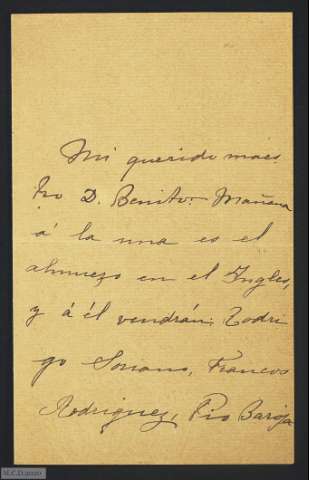 Mi querido maes
tro D. Benito: Mañana
á la una es el
almuerzo en el Ingles,
y á él vendrán: Rodri
go Soriano, Francos
Rodriguez, Pio Baroja